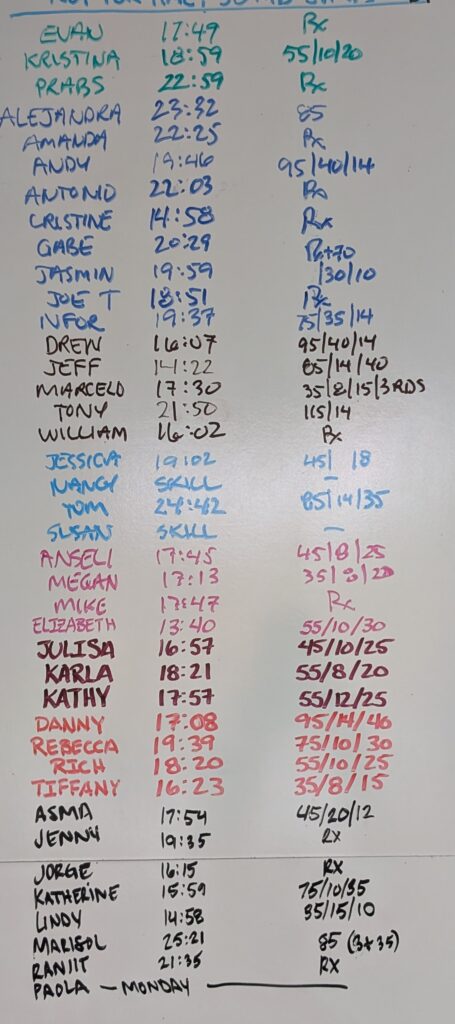 EVAN 17:49 Rx
KRISTINA 18:59 55/10/20
PRABS 22:59 Rx
ALEJANDRA 23:32 85
AMANDA 22:25 Rx
ANDY 19:46 95/40/14
ANTONIO 22:03 Rx
CRISTINE 14:58 Rx
GABE 20:29 Rx+70
JASMIN 19:59 /30/10
JOE T 18:51 Rx
19:37 75/35/14
DREW 16:07 95/40/14
JEFF 14:22 85/14/40
MARCELO 17:30 35/8/15/3RDS
TONY 21:50 115/14
WILLIAM 16:02 Rx
JESSICA 19:02 45/ 18
NANCY SKILL —
TOM 24:42 85/14/35
SUSAN SKILL —
ANSELI 17:45 45/8/25
MEGAN 17:13 35/8/
MIKE 17:47 Rx
ELIZABETH 13:40 55/10/30
JULISA 16:57 45/10/25
KARLA 18:21 55/8/20
KATHY 17:57 55/12/25
DANNY 17:08 95/14/40
REBECCA 19:39 75/10/30
RICH 18:20 55/10/25
TIFFANY 16:23 35/8/15
ASMA 17:54 45/20/12
JENNY 19:35 RX
JORGE 16:15 RX
KATHERINE 15:59 75/10/35
LINDY 14:58 35/15/10
MARISOL 25:21 85 (3x35)
RANJIT 21:35 RX
PAOLA — MONDAY —